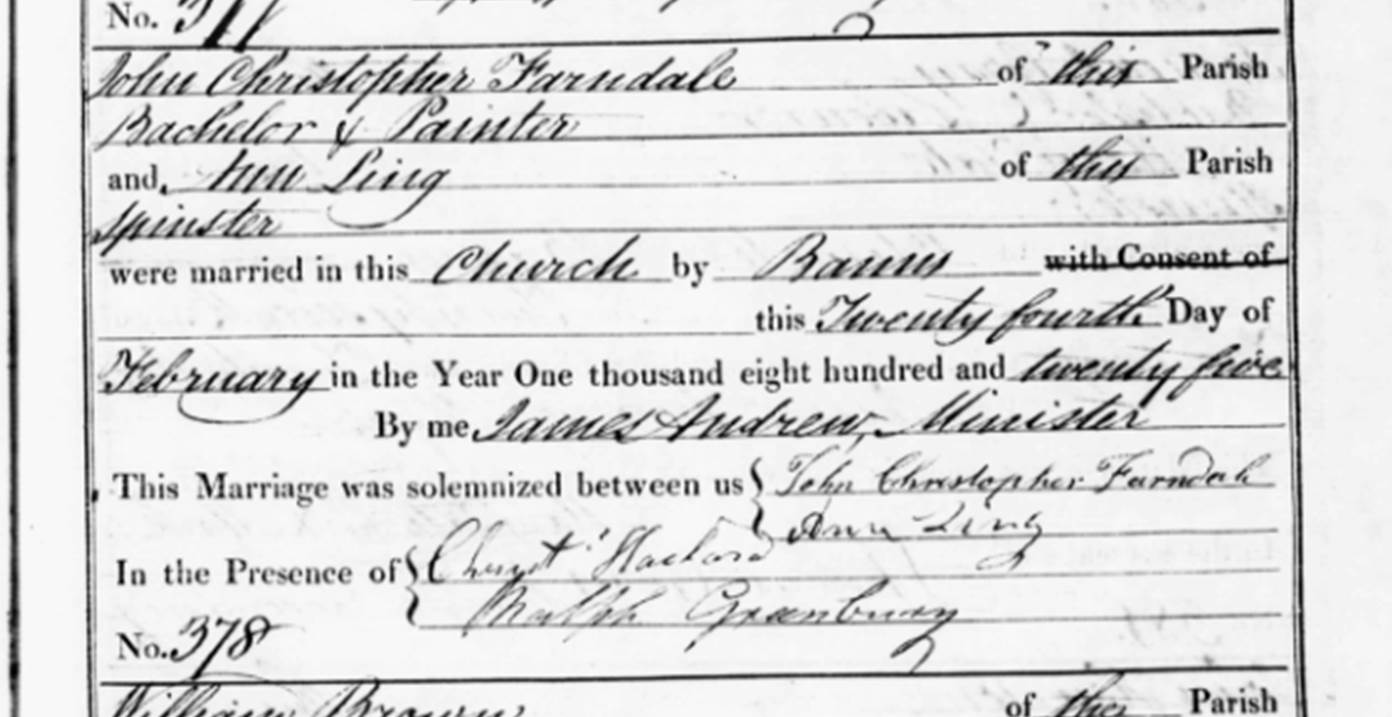 No. 377
John Christopher Farndale of this Parish
Bachelor & Painter
and Ann Ling of this Parish
Spinster
were married in this Church by Banns with Consent of
this Twenty fourth Day of
February in the Year One thousand eight hundred and twenty five
By me James Andrew, Minister
This Marriage was solemnized between us John Christopher Farndale
Ann Ling
In the Presence of Christ
Ralph Greenbury
No. 378
William Brown of this Parish